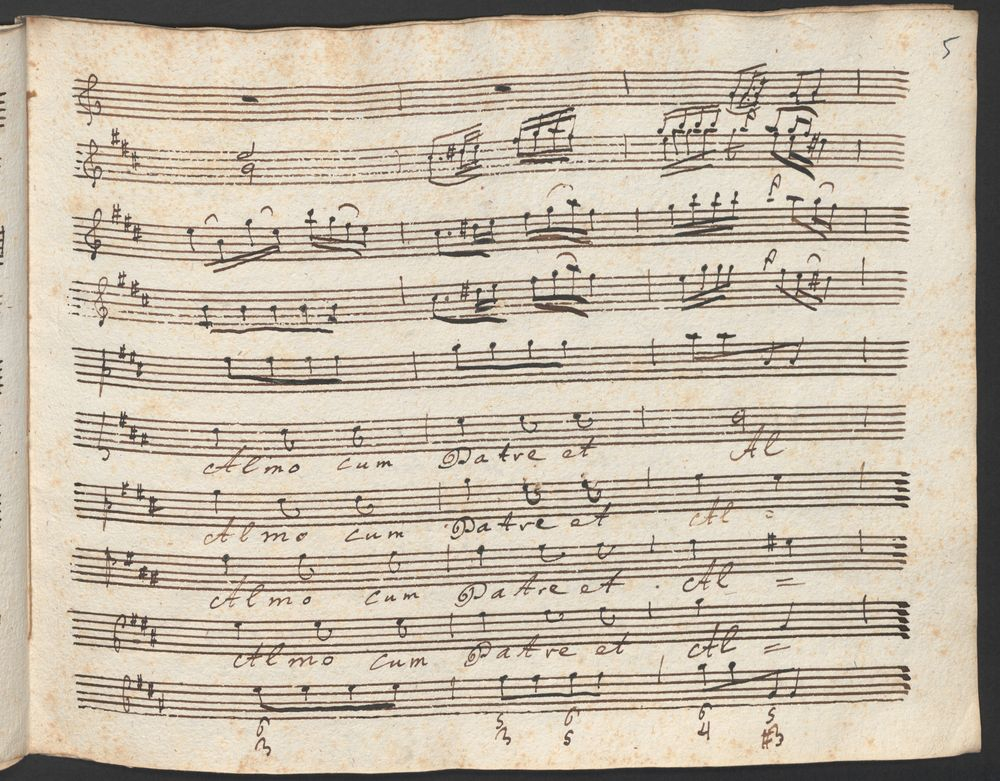 5
Almo cum Patre et Al
Almo cum Patre et Al =
Almo cum Patre et Al =
Almo cum Patre et Al =
6 5 6 6 5
3 3 5 4 #3